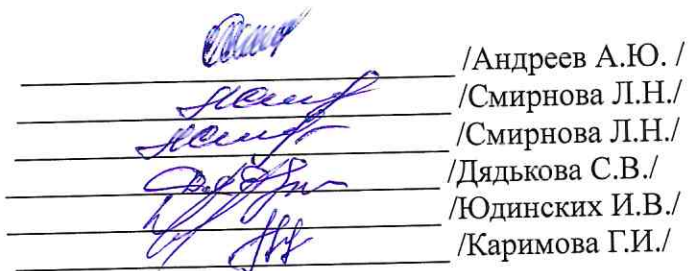 /Андреев А.Ю. /
/Смирнова Л.Н./
/Смирнова Л.Н./
/Дядькова С.В./
/Юдинских И.В./
/Каримова Г.И./